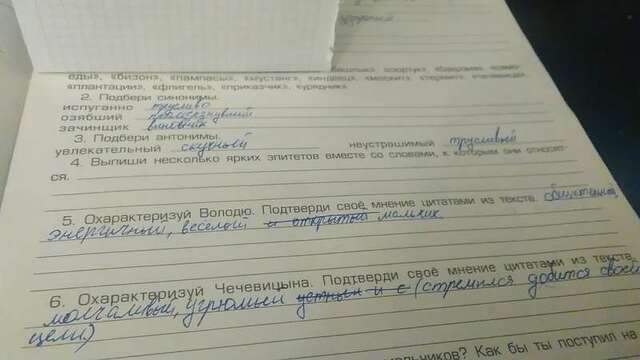 еды», «бизон», «пампасы», «мустанг», «индеец», «москит», «термит»,
«плантации», «флигель», «приказчик», «урядник».
2. Подбери синонимы.
испуганно трусливо
озябший
зачинщик виновник
3. Подбери антонимы.
увлекательный скучный неустрашимый трусливый
4. Выпиши несколько ярких эпитетов вместе со словами, к которым они относят-
ся.
5. Охарактеризуй Володю. Подтверди своё мнение цитатами из текста.
энергичный, весёлый и открытый мальчик
6. Охарактеризуй Чечевицына. Подтверди своё мнение цитатами из текста.
молчаливый, угрюмый и с (стремился добится своей
цели)
мальчиков? Как бы ты поступил на